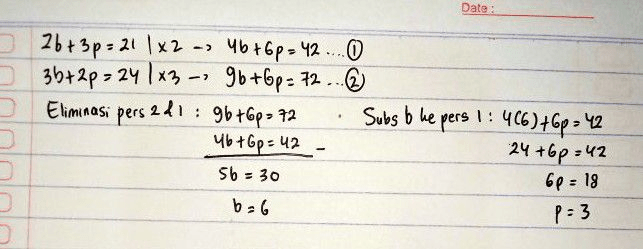 Date :
2b + 3p = 21 | x2 -> 4b + 6p = 42 .... ①
3b + 2p = 24 | x3 -> 9b + 6p = 72 ... ②
Eliminasi pers 2 & 1 : 9b + 6p = 72
4b + 6p = 42 -
5b = 30
b = 6
· Subs b ke pers 1 : 4(6) + 6p = 42
24 + 6p = 42
6p = 18
p = 3